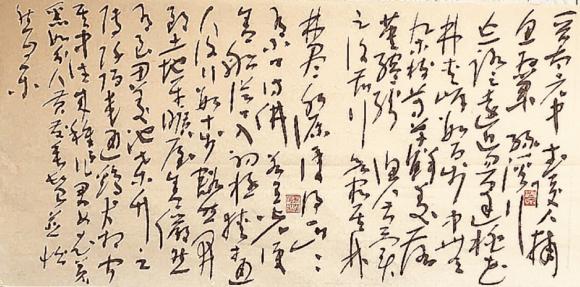 晉太元中武陵人捕
魚為業緣溪行
忘路之遠近忽逢桃花
林夾岸數百步中無
雜樹芳草鮮美落
英繽紛漁人甚異
之復前行欲窮其林
林盡水源便得一山山
有小口仿佛若有光便
舍船從口入初極狹才通
人復行數十步豁然開
朗土地平曠屋舍儼然
有良田美池桑竹之
屬阡陌交通雞犬相聞
其中往來種作男女衣著
悉如外人黃髮垂髫並怡
然自樂